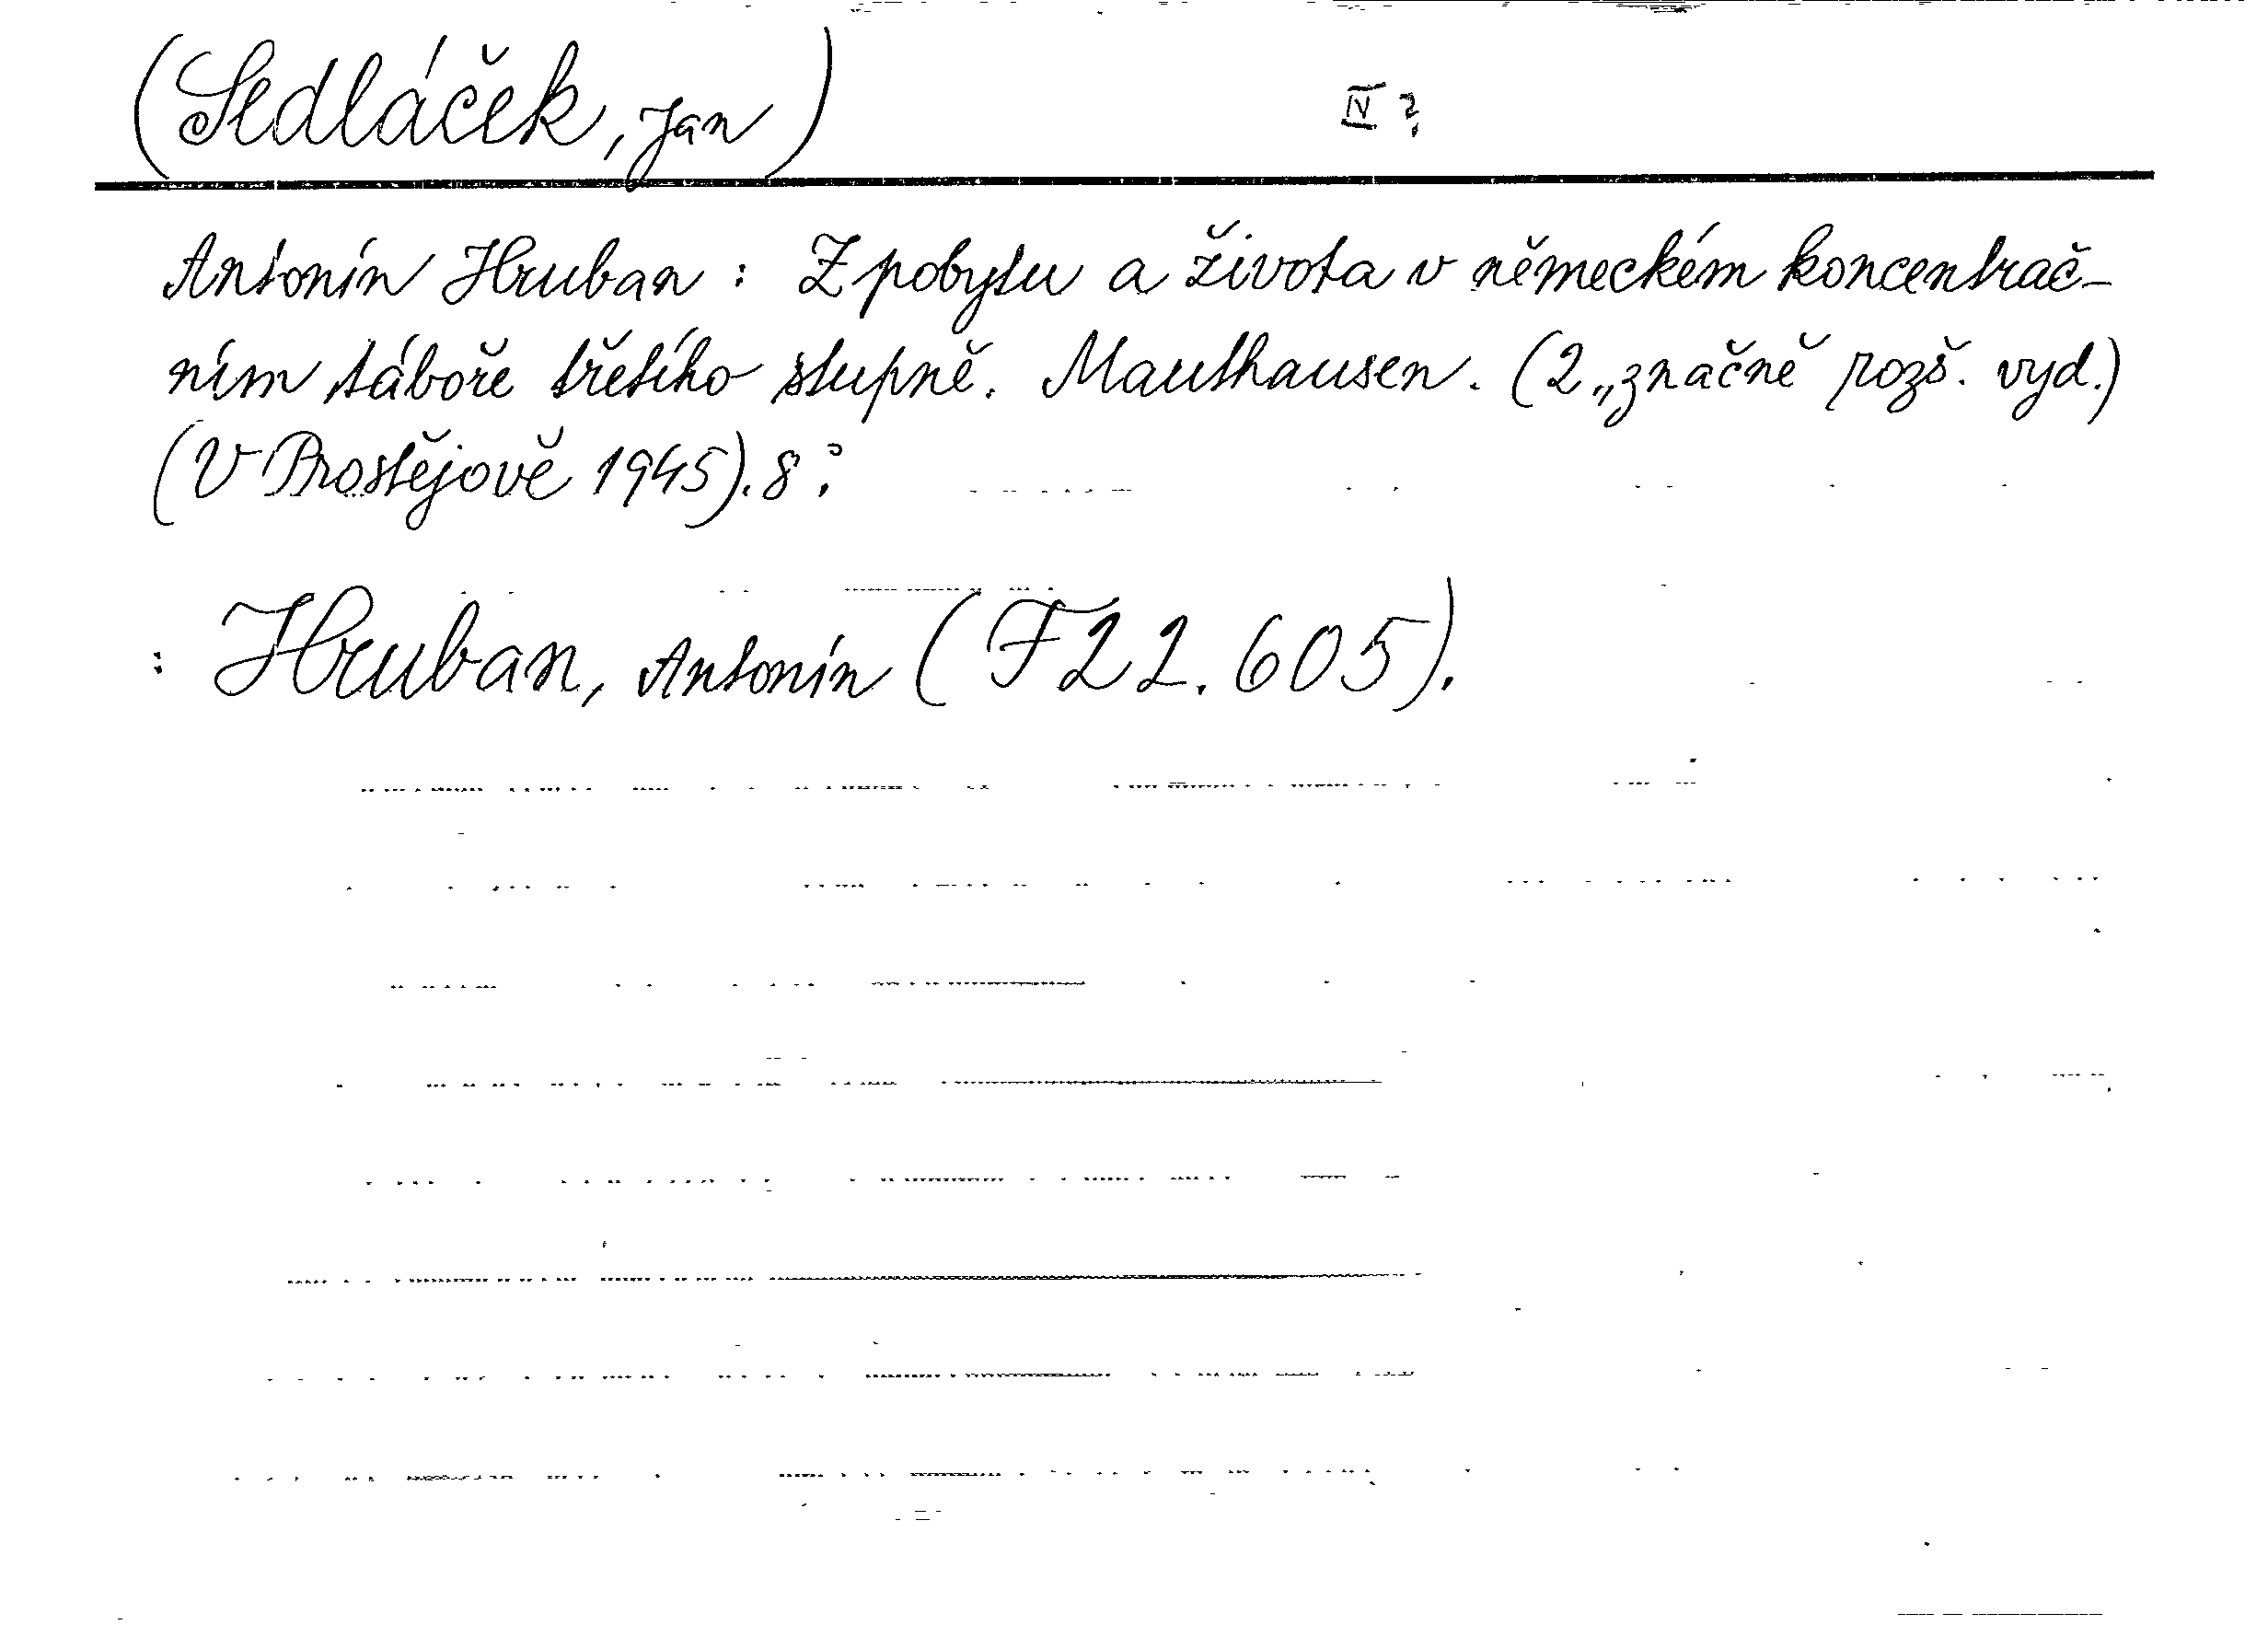 (Sedláček, Jan) IV ?
Antonín Hruban : Z pobytu a života v německém koncentrač-
ním táboře třetího stupně. Mauthausen. (2., značně rozš. vyd.)
(V Prostějově 1945). 8°.
: Hruban, Antonín (F 22.605).